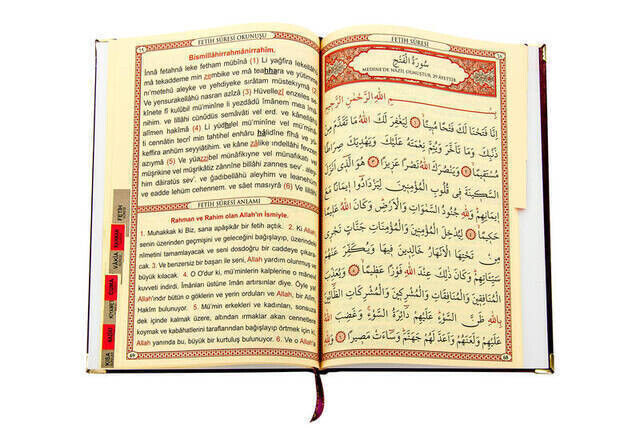 FETİH SÛRESİ OKUNUŞU
Bismillâhirrahmânirrahîm.
İnnâ fetahnâ leke fetham mübînâ (1) Li yağfira lekellâhü
mâ tekaddeme min zembike ve mâ teahhara ve yütimme
ni'metehû aleyke ve yehdiyeke sırâtam müstekîmâ (2)
Ve yensurakellâhü nasran azîzâ (3) Hüvellezî enzeles se
kînete fî kulûbil mü'minîne li yezdâdû îmânem mea îmâ
nihim. ve lillâhi cünûdüs semâvâti vel erd. ve kânellâhü
alîmen hakîmâ (4) Li yüdhılel mü'minîne vel mü'minâ
ti cennâtin tecrî min tahtihel enhâru hâlidîne fîhâ ve yü
keffira anhüm seyyiâtihim. ve kâne zâlike ındellâhi fevzen
azıymâ (5) Ve yüazzibel münâfikîne vel münâfikâti vel
müşrikîne vel müşrikâtiz zânnîne billâhi zannes sev'. aley
him dâiratüs sev'. ve ğadıbellâhü aleyhim ve leanehüm
ve eadde lehüm cehennem. ve sâet masıyrâ (6) Ve lillâhi
FETİH SÛRESİ ANLAMI
Rahman ve Rahim olan Allah'ın İsmiyle.
1. Muhakkak ki Biz, sana apaşikâr bir fetih açtık. 2. Ki Allah
senin üzerinden geçmişini ve geleceğini bağışlayıp, üzerindeki
nîmetini tamamlayacak ve seni dosdoğru bir caddeye çıkara
cak. 3. Ve benzersiz bir başarı ile seni, Allah yardım olunmuş ve
büyük kılacak. 4. O O'dur ki, mü'minlerin kalplerine o mânevi
kuvveti indirdi. İmânları üstüne îmân artırsınlar diye. Öyle ya
Allah'ındır bütün o göklerin ve yerin orduları ve Allah, bir Alîm
Hakîm bulunuyor. 5. Mü'min erkekleri ve kadınları, sonsuza
dek içinde kalmak üzere, altından ırmaklar akan cennetlere
koymak ve kabahatlerini taraflarından bağışlayıp örtmek için ki,
Allah yanında bu, büyük bir kurtuluş bulunuyor. 6. Ve o Allah'a
69
FETİH
VAKIA
CUMA
AMME
KISA
FETİH SÛRESİ
سُورَةُ الْفَتْحِ
MEDİNE'DE NAZİL OLMUŞTUR, 29 AYETTİR
بِسْمِ اللهِ الرَّحْمٰنِ الرَّحِيمِ
اِنَّا فَتَحْنَا لَكَ فَتْحًا مُبِينًا ۝١ لِيَغْفِرَ لَكَ اللهُ مَا تَقَدَّمَ مِنْ
ذَنْبِكَ وَمَا تَاَخَّرَ وَيُتِمَّ نِعْمَتَهُ عَلَيْكَ وَيَهْدِيَكَ صِرَاطًا
مُسْتَقِيمًا ۝٢ وَيَنْصُرَكَ اللهُ نَصْرًا عَزِيزًا ۝٣ هُوَ الَّذِى اَنْزَلَ
السَّكِينَةَ فِى قُلُوبِ الْمُؤْمِنِينَ لِيَزْدَادُوا اِيمَانًا مَعَ
اِيمَانِهِمْ وَلِلّٰهِ جُنُودُ السَّمٰوَاتِ وَالْاَرْضِ وَكَانَ اللهُ عَلِيمًا
حَكِيمًا ۝٤ لِيُدْخِلَ الْمُؤْمِنِينَ وَالْمُؤْمِنَاتِ جَنَّاتٍ تَجْرِى
مِنْ تَحْتِهَا الْاَنْهَارُ خَالِدِينَ فِيهَا وَيُكَفِّرَ عَنْهُمْ
سَيِّاٰتِهِمْ وَكَانَ ذٰلِكَ عِنْدَ اللهِ فَوْزًا عَظِيمًا ۝٥ وَيُعَذِّبَ
الْمُنَافِقِينَ وَالْمُنَافِقَاتِ وَالْمُشْرِكِينَ وَالْمُشْرِكَاتِ الظَّانِّينَ
بِاللهِ ظَنَّ السَّوْءِ عَلَيْهِمْ دَائِرَةُ السَّوْءِ وَغَضِبَ اللهُ
عَلَيْهِمْ وَلَعَنَهُمْ وَاَعَدَّ لَهُمْ جَهَنَّمَ وَسَاءَتْ مَصِيرًا ۝٦ وَلِلّٰهِ
68